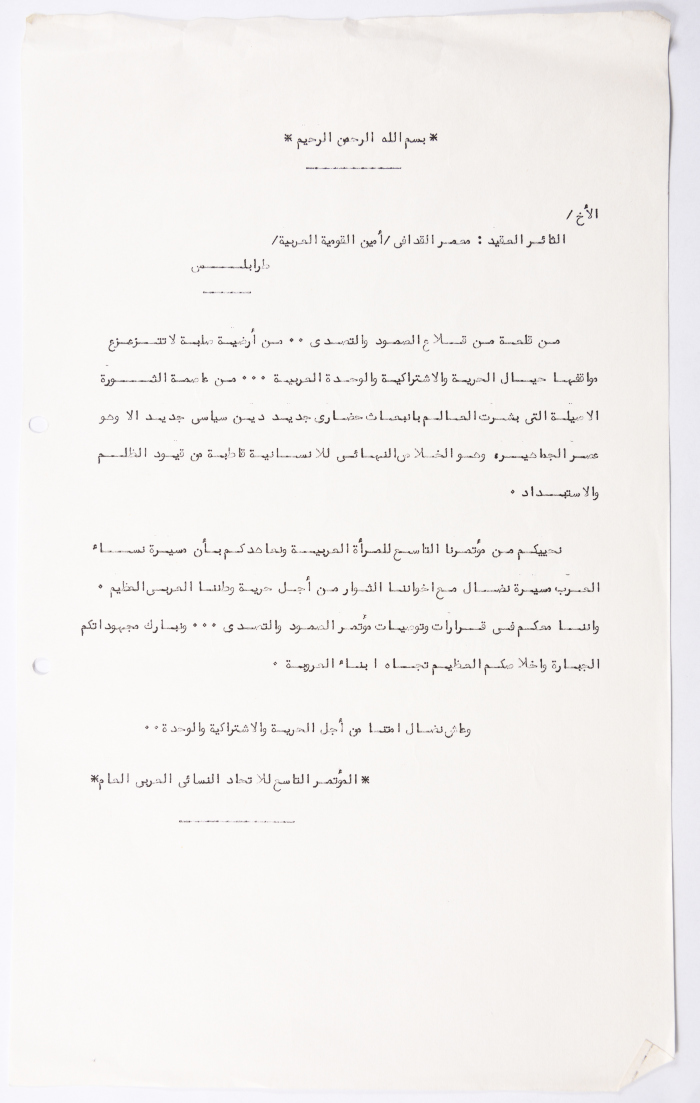 * بسم الله الرحمن الرحيم *
الأخ /
الثائر العقيد : معمر القذافى / أمين القومية العربية /
طرابلس
من قلعة من قلاع الصمود والتصدى ٠٠ من أرضية صلبة لا تتزعزع
مواقفها حيال الحرية والاشتراكية والوحدة العربية ٠٠٠ من عاصمة الثورة
الاصيلة التى بشرت العالم بانبعاث حضارى جديد دين سياسى جديد الا وهو
عصر الجماهير، وهو الخلاص النهائى للانسانية قاطبة من قيود الظلم
والاستبداد ٠
نحييكم من مؤتمرنا التاسع للمرأة العربية ونعاهدكم بأن مسيرة نساء
العرب مسيرة نضال مع اخواننا الثوار من أجل حرية وطننا العربى العظيم ٠
واننا معكم فى قرارات وتوصيات مؤتمر الصمود والتصدى ٠٠٠ ونبارك مجهوداتكم
الجبارة واخلاصكم العظيم تجاه ابناء العروبة ٠
وعاش نضال امتنا من أجل الحرية والاشتراكية والوحدة ٠٠
* المؤتمر التاسع للاتحاد النسائى العربى العام *